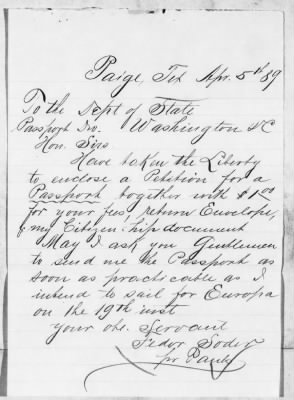 Paige, Tex Apr. 5th 89
To the Dept of State
Passport Div. Washington DC
Hon. Sirs
Have taken the Liberty
to enclose a Petition for a
Passport together with $1.00
for your fees, return Envelope,
my Citizenship document
May I ask you Gentlemen
to send me the Passport as
soon as practicable as I
intend to sail for Europa
on the 19th inst
your obt. Servant
Fedor Soder
pr